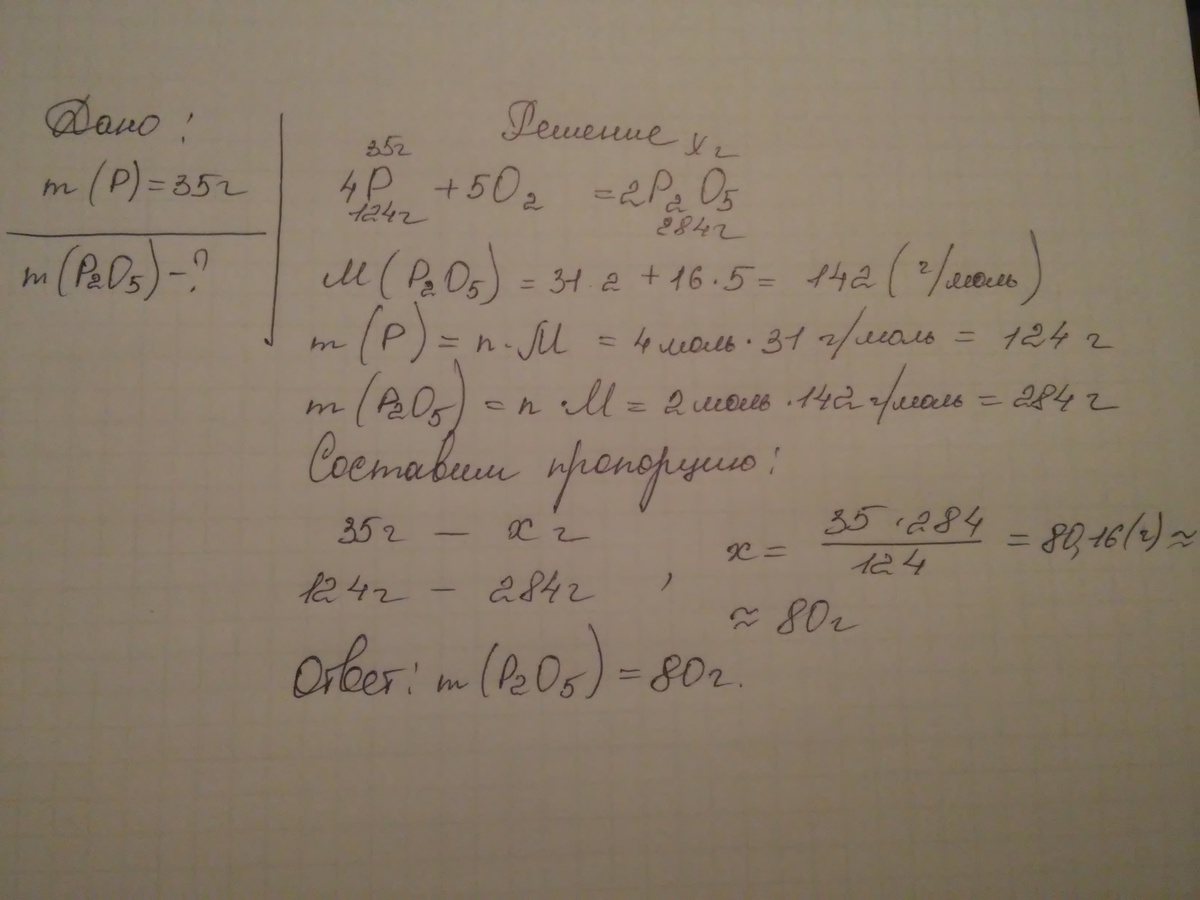 Дано:
m (P) = 35г
m (P₂O₅) - ?
Решение
35г xг
4P + 5O₂ = 2P₂O₅
124г 284г
M (P₂O₅) = 31·2 + 16·5 = 142 (г/моль)
m (P) = n·M = 4 моль · 31 г/моль = 124 г
m (P₂O₅) = n·M = 2 моль · 142 г/моль = 284 г
Составим пропорцию:
35г - x г
124г - 284г ,
x = 35·284 / 124 = 80,16(г) ≈
≈ 80г
Ответ: m (P₂O₅) = 80г.